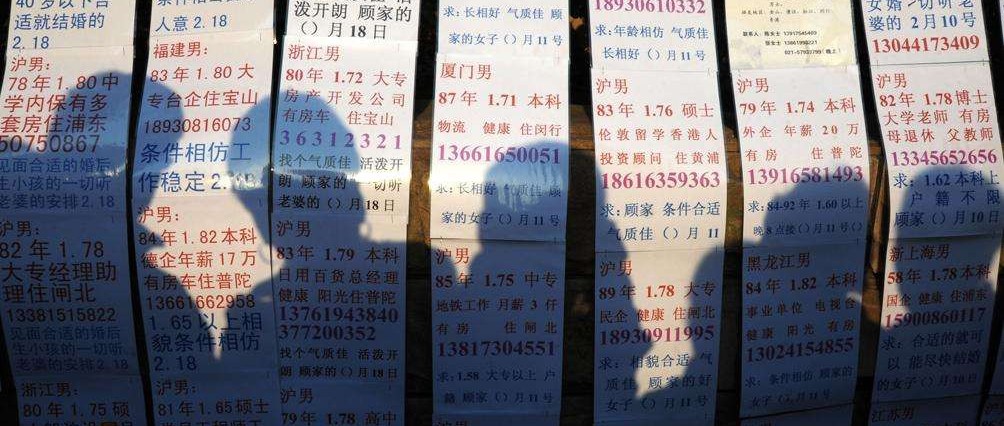 40岁以下合
适就结婚的
2.18
沪男:
78年1.80中
学内保有多
套房住浦东
50750867
见面合适的婚后
生小孩的一切听
老婆的安排2.18
82年1.78
大专经理助
理住闸北
13381515822
见面合适的婚后
生小孩的一切听
老婆的安排2.18
浙江男:
80年1.75硕
人意2.18
福建男:
83年1.80大
专台企住宝山
18930816073
条件相仿工
作稳定2.18
沪男:
84年1.82本科
德企年薪17万
有房车住普陀
13661662958
1.65以上相
貌条件相仿
2.18
沪男:
81年1.65硕士
泼开朗 顾家的
()月18日
浙江男
80年1.72大专
房产开发公司
有房车 住宝山
36312321
找个气质佳 活泼开
朗 顾家的 一切听
老婆的()月18日
沪男
83年1.79本科
日用百货总经理
健康 阳光住普陀
13761943840
377200352
找个气质佳 活泼开
朗 顾家的()月18日
沪男
79年1.78高中
求:长相好 气质佳 顾
家的女子()月11号
厦门男
87年1.71本科
物流 健康 住闵行
13661650051
求:长相好 气质佳 顾
家的女子()月11号
沪男
85年1.75中专
地铁工作 月薪3仟
有房 住闸北
13817304551
求:1.58大专以上户
籍 顾家()月11号
18930610332
求:年龄相仿 气质佳
长相好()月11号
沪男
83年1.76硕士
伦敦留学香港人
投资顾问 住黄浦
18616359363
求:顾家 条件合适
气质佳()月11
沪男
89年1.78大专
民企 健康 住闸北
18930911995
求:相貌合适气
质佳 顾家的好
女子()月11号
沪男
79年1.74本科
外企 年薪20万
有房 住普陀
13916581493
求:84-92年1.60以上
晚8点接()月11号
黑龙江男
84年1.82本科
事业单位 电视台
健康 阳光 有房
13024154855
求:条件相仿 顾家的
女子()月11号
婆的2月10号
13044173409
沪男
82年1.78博士
大学老师 有房
母退休 父教师
13345652656
求:1.62本科上
户籍不限
顾家()月10日
新上海男
58年1.78本科
国企 健康 住浦东
15900860117
求:合适的就可
以 能尽快结婚
的女子()月10日
江苏男